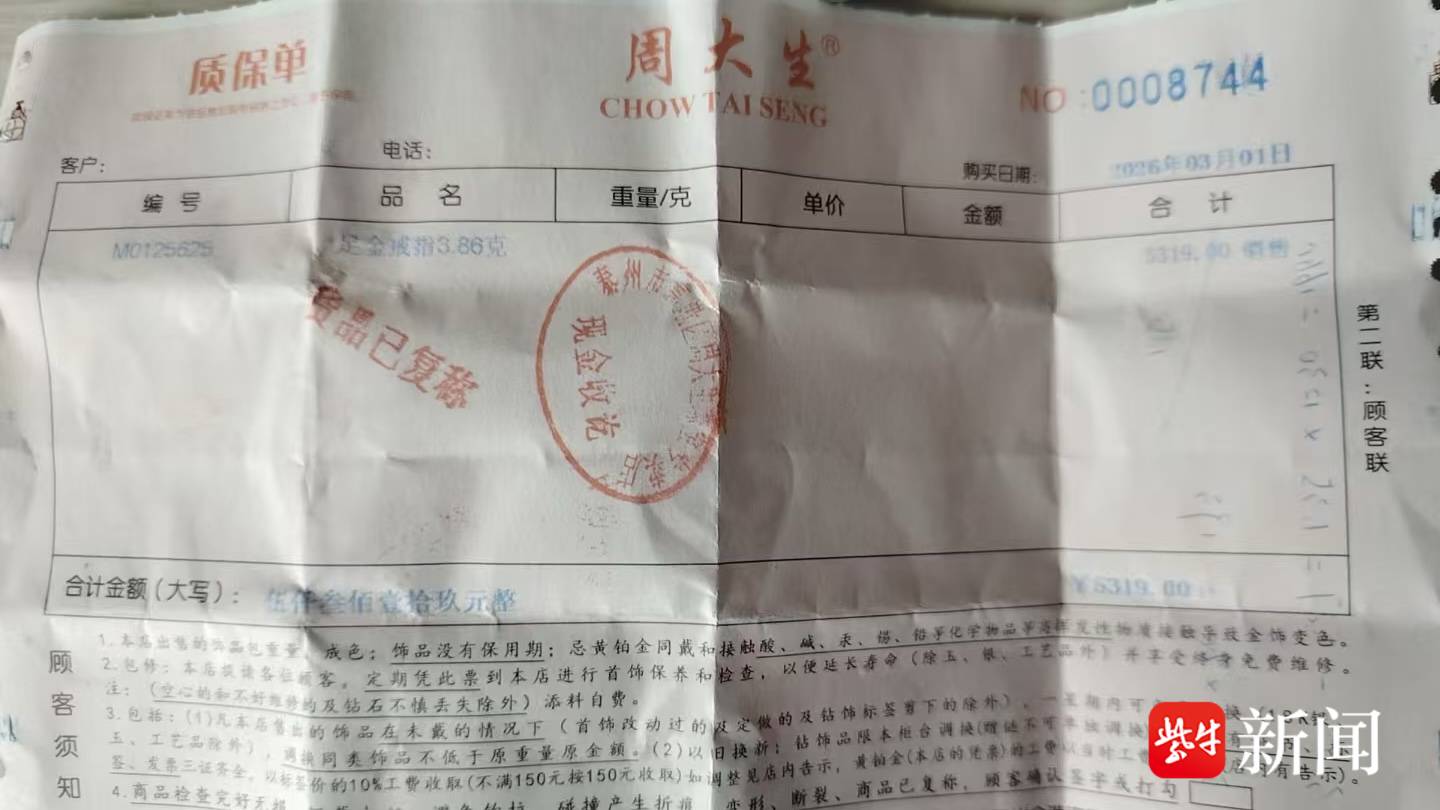 质保单
周大生®
CHOW TAI SENG
NO:0008744
客户:
电话:
购买日期:
2026年03月01日
编号 品名 重量/克 单价 金额 合计
M0125625 足金戒指3.86克 5319.00 销售
货品已复称
泰州市
现金收讫
第二联:顾客联
合计金额(大写): 伍仟叁佰壹拾玖元整 ¥5319.00
顾客须知
1.本店出售的饰品包重量、成色;饰品没有保用期;忌黄铂金同戴和接触酸、碱、汞、锡、铅等化学物品等
导致金饰变色。
2.包修:本店提请各位顾客。定期凭此票到本店进行首饰保养和检查,以便延长寿命(除玉、银、工艺品外)并享受终身免费维修。
注:(空心的和不好维修的及钻石不慎丢失除外)添料自费。
3.包括:(1)凡本店售出的饰品在未戴的情况下(首饰改动过的及定做的及钻饰标签剪下的除外),一星期内可
玉、工艺品除外),调换同类饰品不低于原重量原金额。(2)以旧换新:钻饰品限本柜台调换(赠送不可单独调换
签、发票三证齐全。以标签价的10%工费收取(不满150元按150元收取)如调整见店内告示,黄铂金(本店的凭票)的工费以当时工费
店内有告示)。
4.商品检查完好无损
碰撞产生折痕、变形、断裂、商品已复称,顾客确认签字或打勾
紫牛新闻